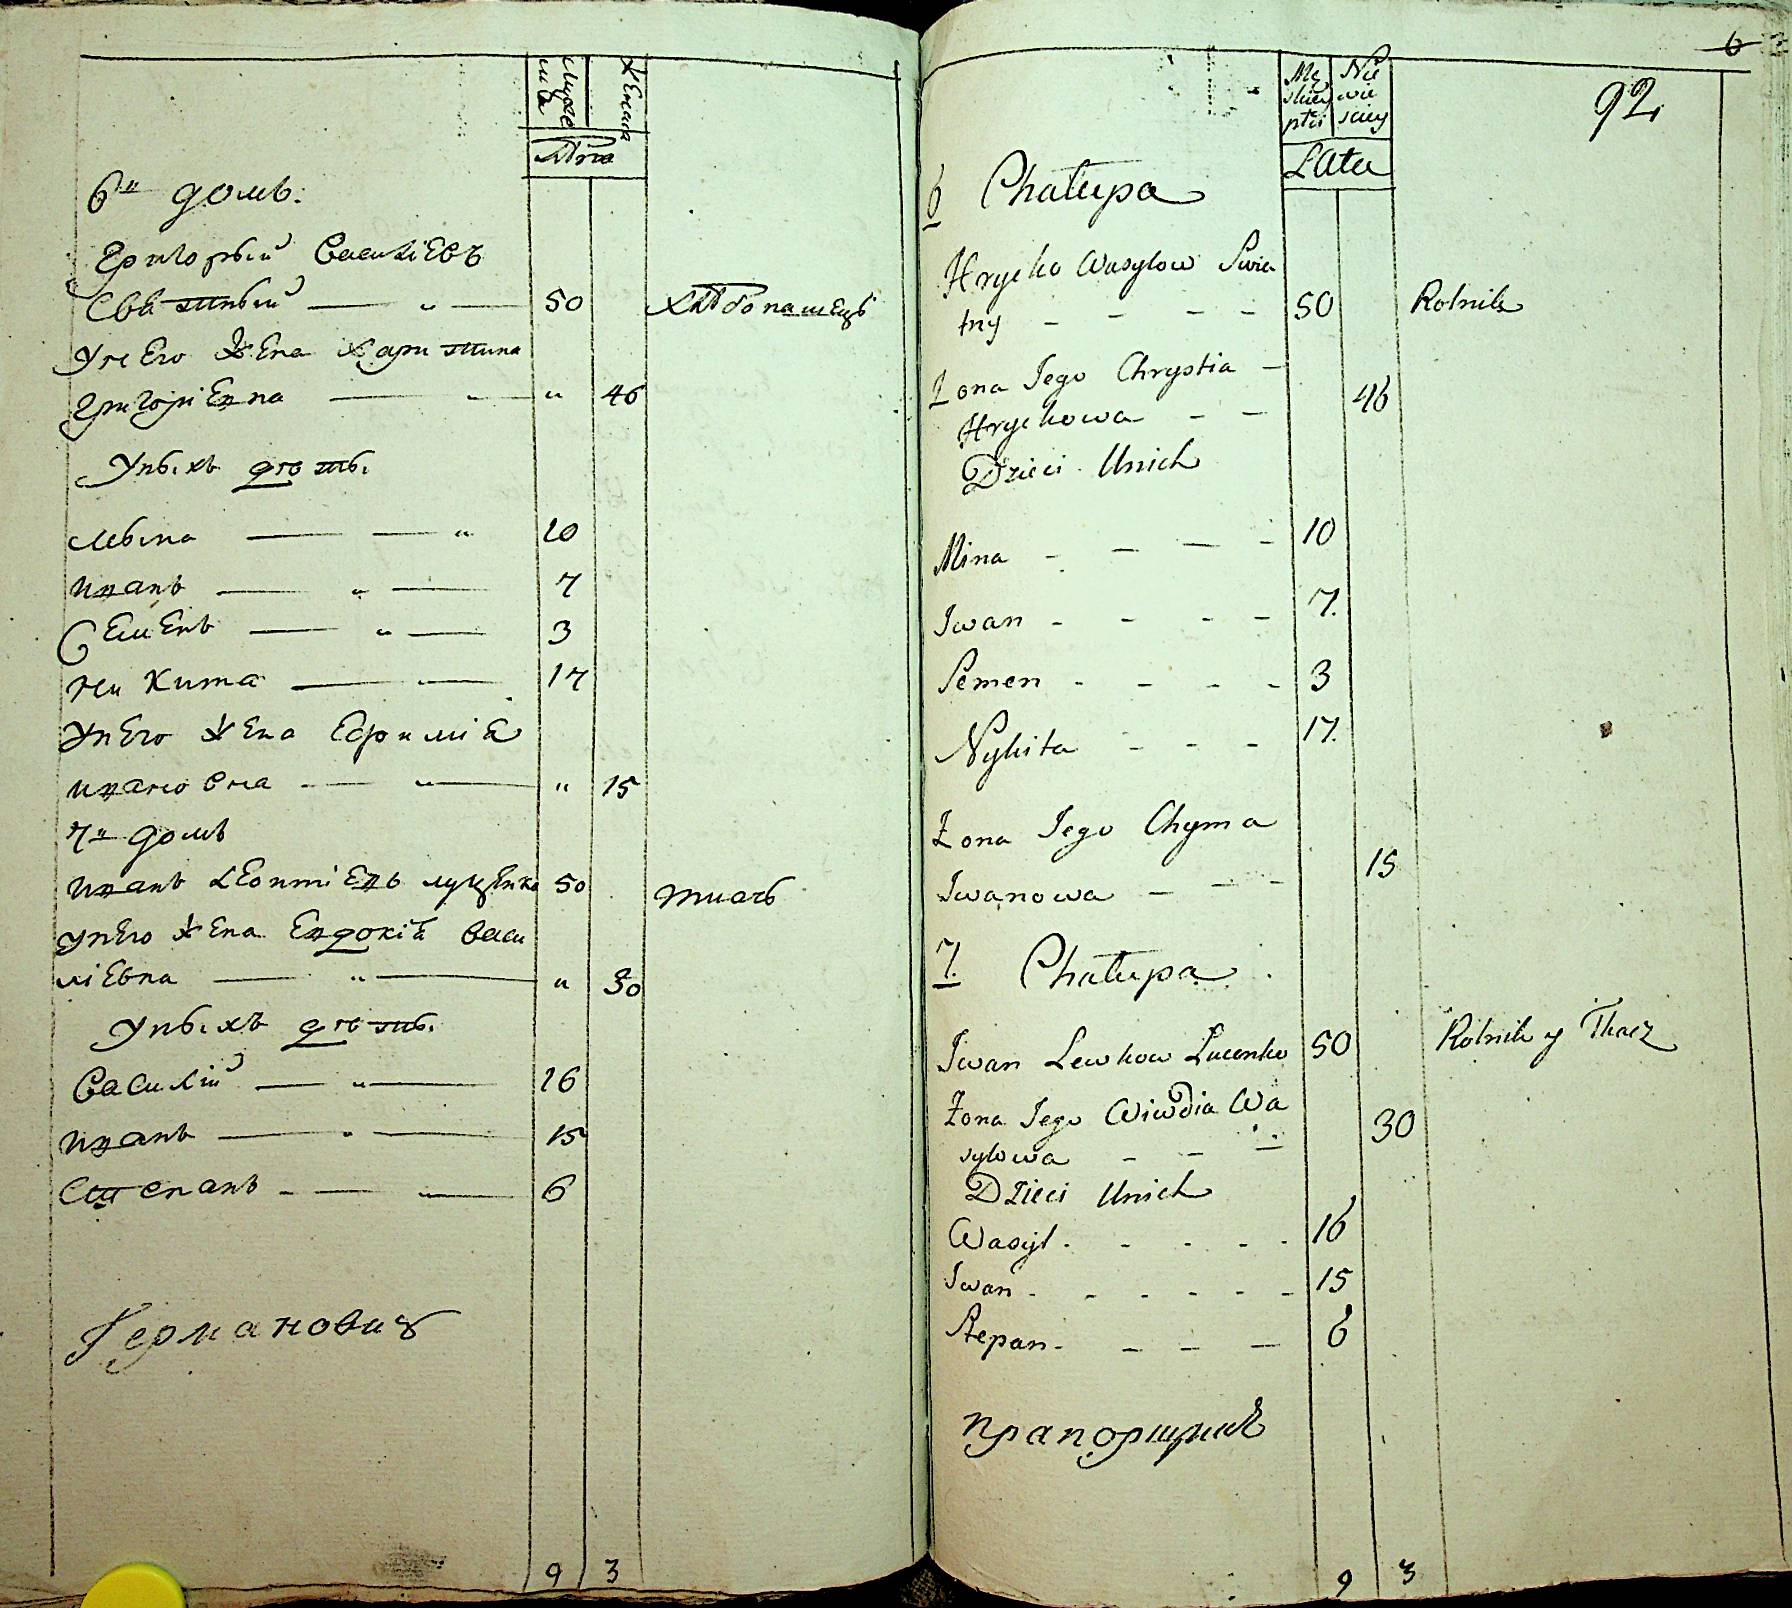 мужеска
женска
лѣта
6й домъ.
Григорый Василіевъ
Свѣтный 50 хлѣбопашецъ
У него жена Харитина
Григоріевна 46
У ныхъ дѣты.
Мына 10
Иванъ 7
Семенъ 3
Никита 17
У него жена Ефимія
Иванювна 15
7й домъ
Иванъ Леонтіевъ Луценко 50 ткачъ
У него жена Евдокія Васи
ліевна 30
У ныхъ дѣты.
Василій 16
Иванъ 15
Степанъ 6
Германович
9 3
6
92.
Mę
skiey
płci
Nie
wie
sciey
Lata
6 Chałupa
Hrycko Wasylow Swia
tny - - - - 50 Rolnik
Zona Jego Chrystia -
Hryckowa - - 46
Dzieci Unich
Mina - - - - 10
Jwan - - - - 7.
Semen - - - - 3
Nykita - - - 17.
Zona Jego Chyma
Jwanowa - - - 15
7. Chałupa.
Jwan Lewkow Łucenko 50 Rolnik y Tkacz
Zona Jego Wiwdia Wa
sylowa - - - 30
Dzieci Unich
Wasyl - - - - - 16
Jwan - - - - - - 15
Stepan - - - - 6
прапорщикъ
9 3